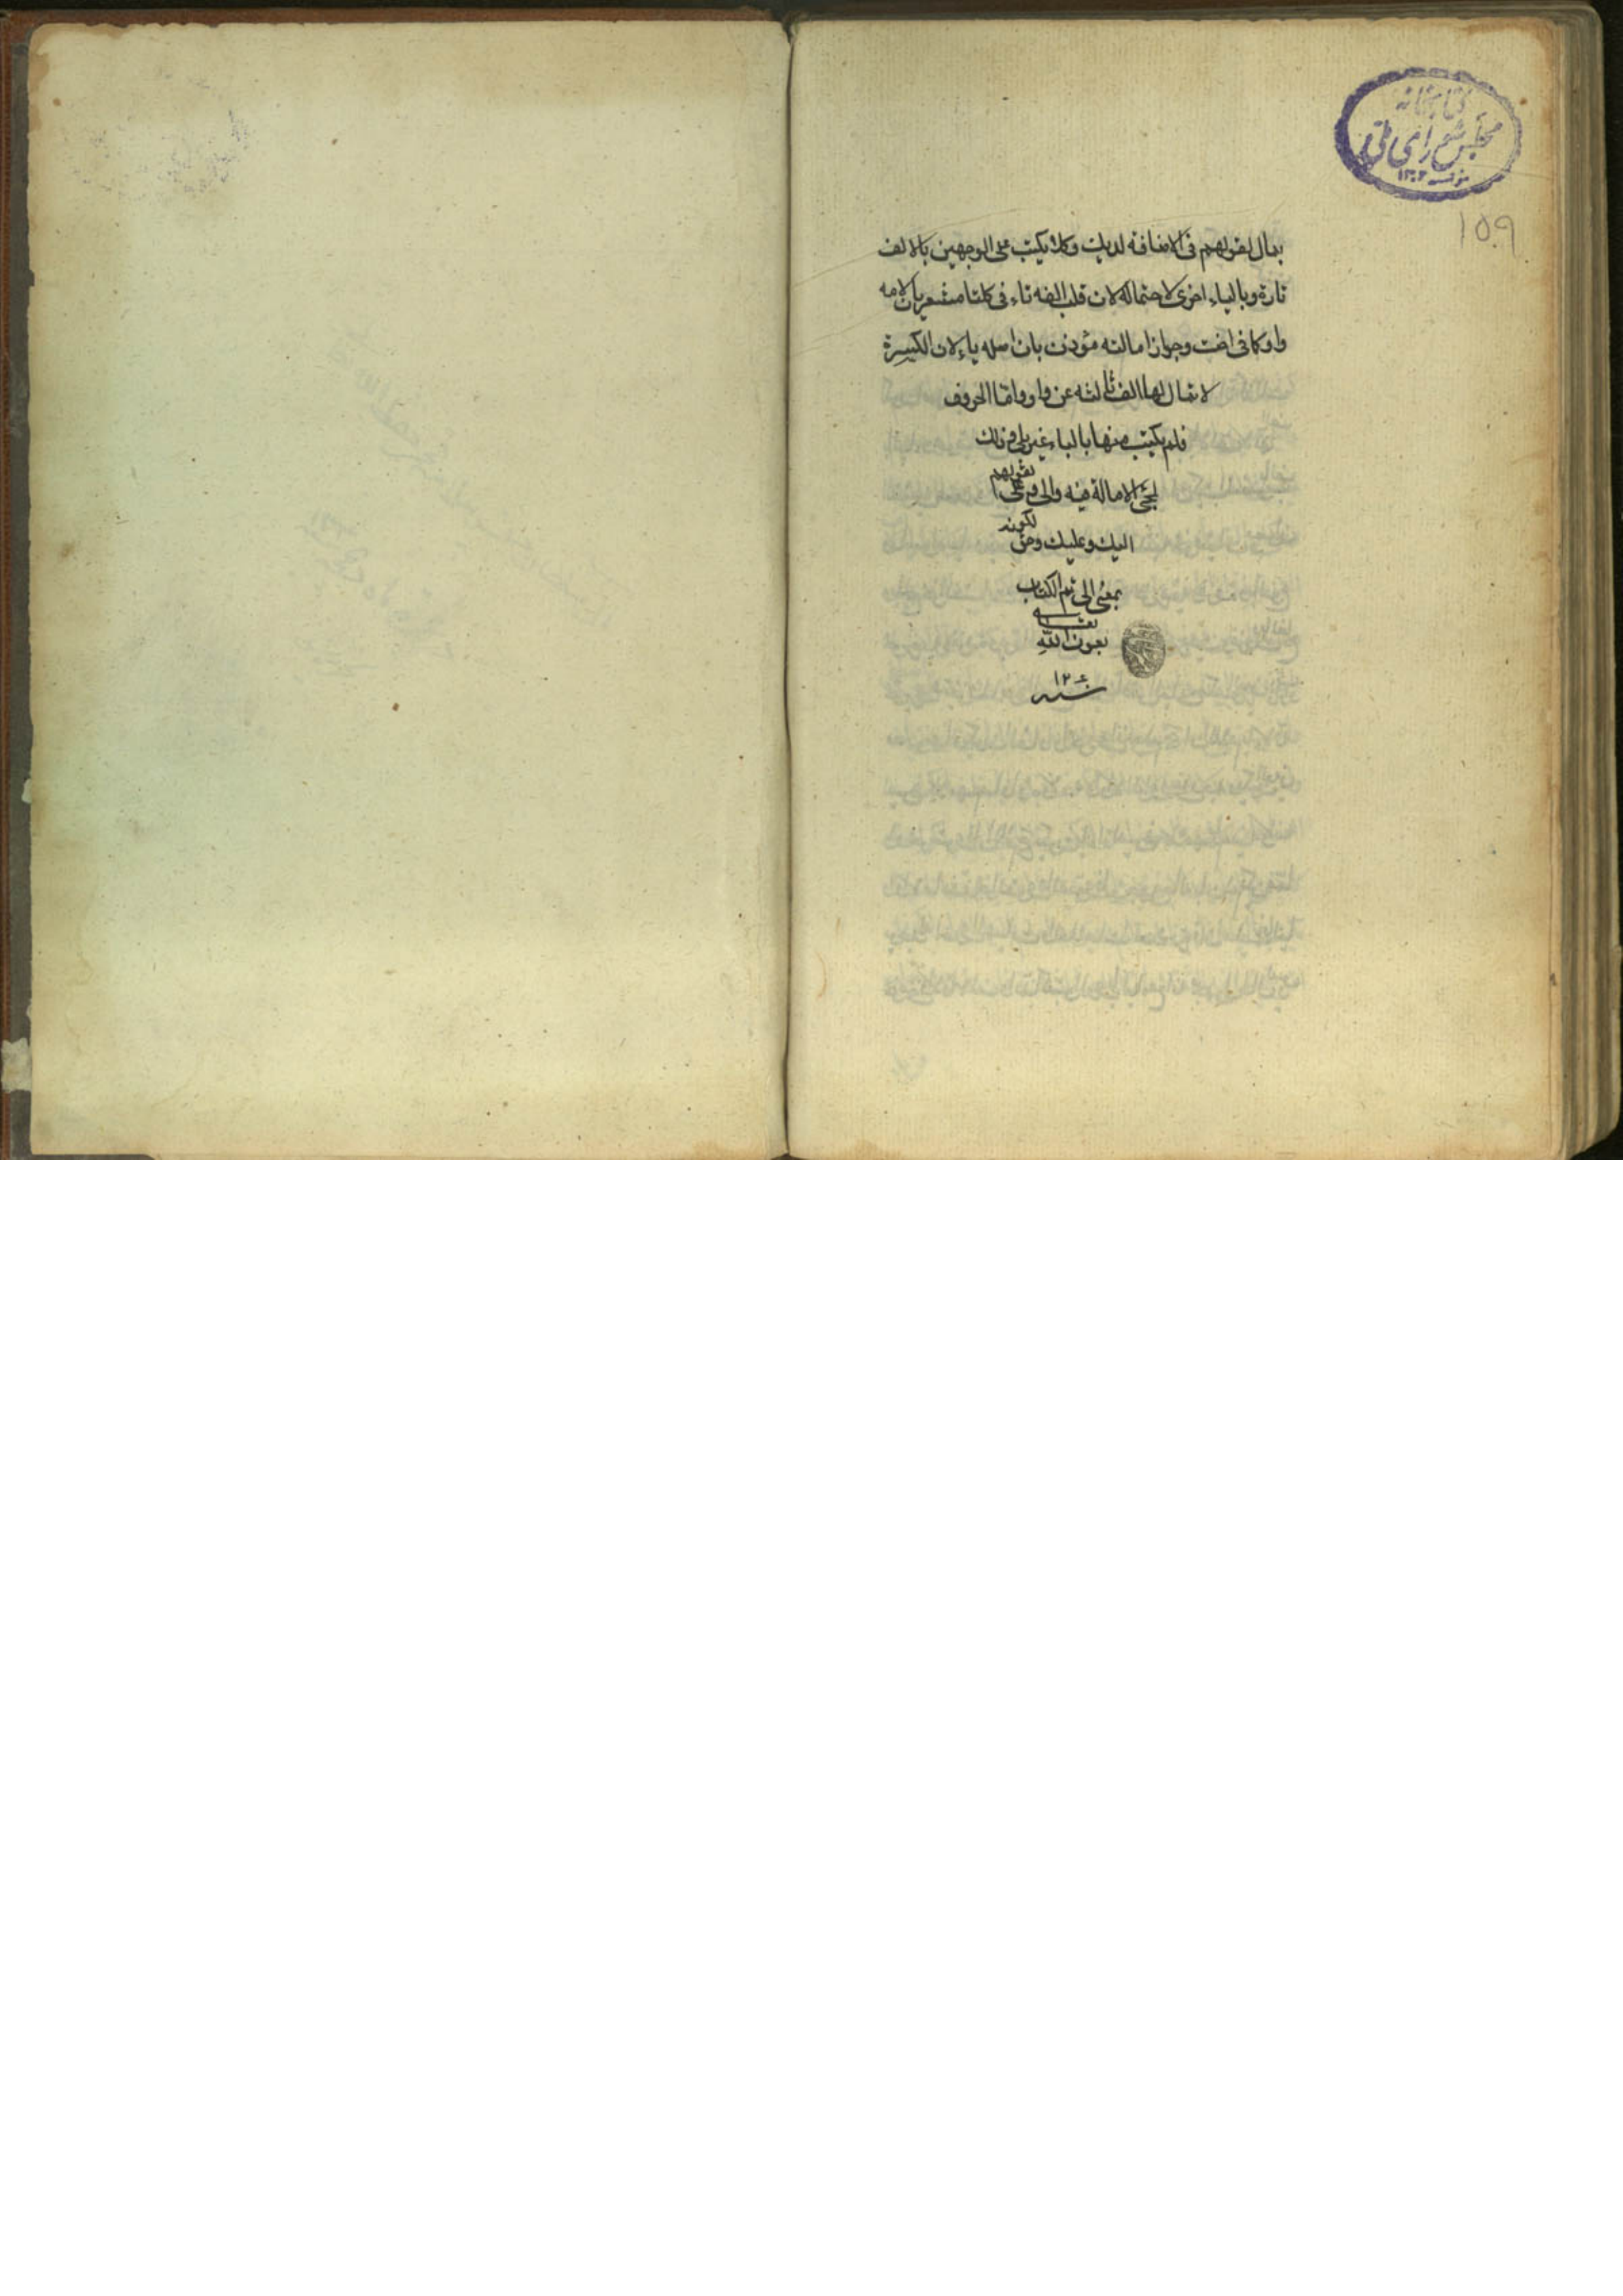 کتابخانه
مجلس شورای ملی
مؤسسه ۱۳۰۲
۱۵۰۹
يمال لقولهم فی الاضافه لديك وكلا يكتب علی الوجهين بالالف
تارة وبالياء اخری لاحتماله لان قلب الفه تاء فی كلتا مشعر بان لامه
واو كما فی اخت وجواز امالته مؤذن بان اصله ياء لان الكسرة
لا تمال لها الف ثالثه عن واو واما الحروف
فلم يكتب منها بالياء غير بلی وذلك
لمجئ الامالة فيه والی وعلی لقولهم
اليك وعليك وحتی لكونه
بمعنی الی تم الكتاب
بعون الله تعالی
سنه